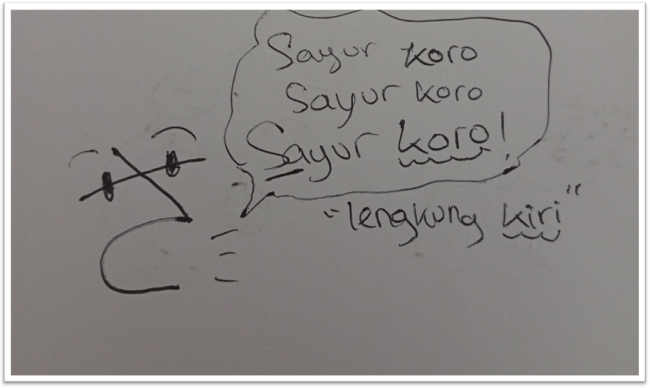 Sayur koro
Sayur koro
Sayur koro!
"lengkung kiri"